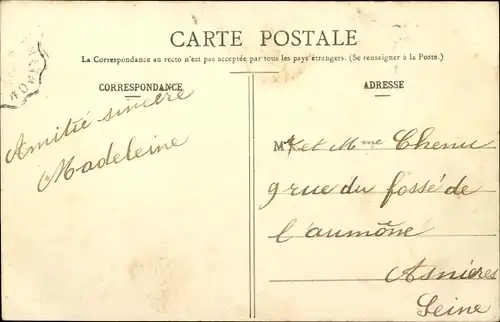 CARTE POSTALE
La Correspondance au recto n'est pas acceptée par tous les pays étrangers. (Se renseigner à la Poste.)
CORRESPONDANCE
Amitié sincère
Madeleine
ADRESSE
Mr et Mme Chenu
9 rue du fossé de
l'aumône
Asnières
Seine